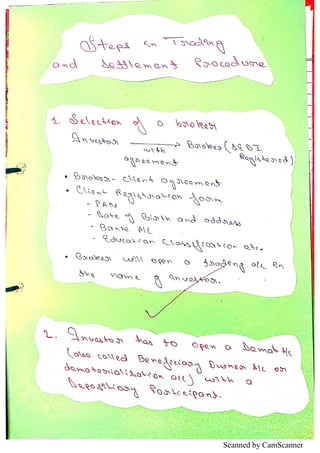 Steps in Trading
and Settlement Procedure
1. Selection of a broker
Investor → Broker (SEBI
with
agreement Registered)
• Broker - Client agreement
• Client Registration form
- PAN
- Date of Birth and address
- Bank A/c
- Education Classification etc.
• Broker will open a trading a/c in
the name of investor.
2. Investor has to open a Demat A/c
(also called Beneficiary Owner A/c or
dematerialisation a/c) with a
Depositiary Participant.
Scanned by CamScanner